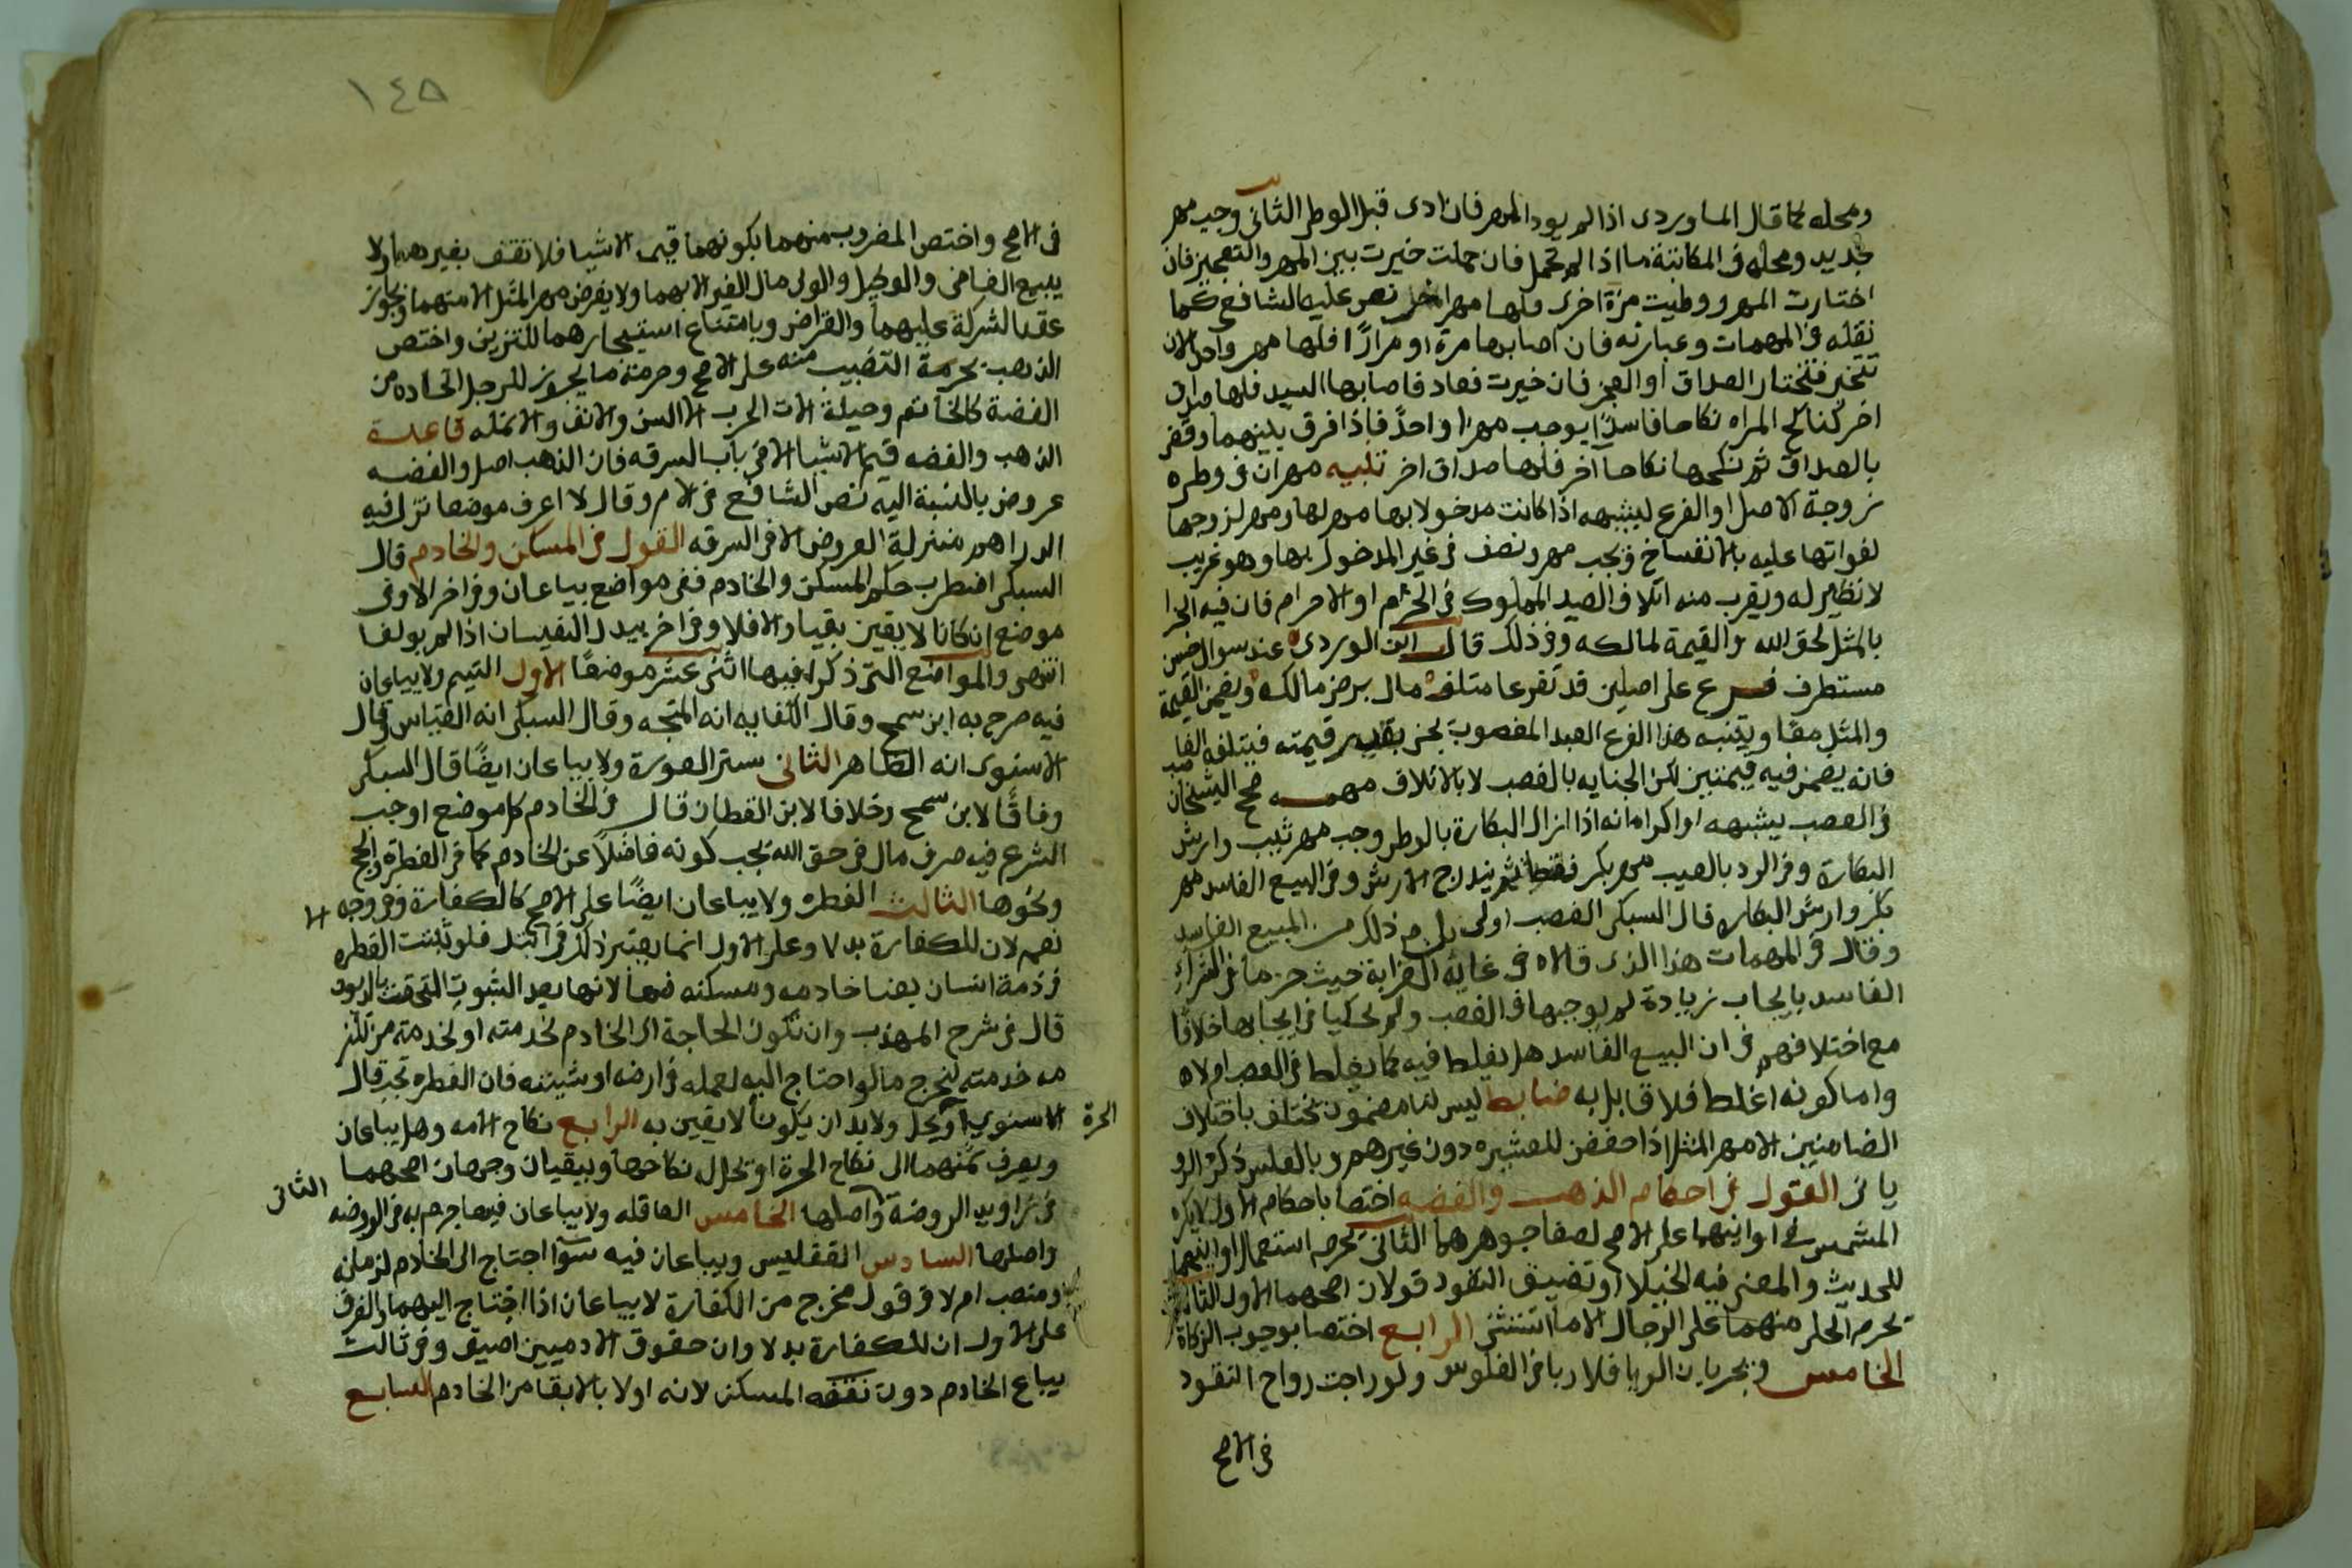 ومحله كما قال الماوردى اذا لم يود المهر فان ادى قبل الوطى الثانى وجب مهر
جديد ومحله فى المكاتبة ما اذا لم تحمل فان حملت خيرت بين المهر والتعجيز فان
اختارت المهر ووطيت مرة اخرى فلها مهر اخر نص عليه الشافعى كما
نقله فى المهمات وعبارته فان اصابها مرة او مرارًا فلها مهر واحد الا ان
تتخير فتختار الصداق او العجز فان خيرت فعاد فاصابها السيد فلها صداق
اخر كناكح المراه نكاحا فاسدًا يوجب مهرا واحدًا فاذا فرق بينهما وقضى
بالصداق ثم نكحها نكاحا آخر فلها صداق اخر تنبيه مهران فى وطىء
زوجة الاصل او الفرع لشبهه اذا كانت مدخولا بها مهر لها ومهر لزوجها
لفواتها عليه بالانفساخ ويجب مهر ونصف فى غير المدخول بها وهو غريب
لا نظير له ويقرب منه اتلاف الصيد المملوك فى الحرم او الاحرام فان فيه الجزا
بالمثل لحق الله والقيمة لمالكه وفى ذلك قال ابن الوردى عند سوال حسن
مستطرف فرع على اصلين قد تفرعا متلف مال برضى مالكه ويضمن القيمة
والمثل معًا ويشبه هذا الفرع العبد المغصوب يجنى بقدر قيمته فيتلفه الغاصب
فانه يضمن فيه قيمتين لكن الجنايه بالغصب لا بالاتلاف مهمه صحح الشيخان
فى الغصب بشبهه او اكراه انه اذا ازال البكارة بالوطى وجب مهر ثيب وارش
البكارة وفى الرد بالعيب مهر بكر فقط ثم يندرج الارش وفى البيع الفاسد مهر
بكر وارش البكاره قال السبكى الغصب اولى بل م ذلك من المبيع الفاسد
وقال فى المهمات هذا الذى قالاه فى غاية الغرابة حيث جزما فى الشراء
الفاسد بايجاب زيادة لم يوجبها فى الغصب ولم يحكيا فى ايجابها خلافًا
مع اختلافهم فى ان البيع الفاسد هل يغلظ فيه كما يغلظ فى الغصب ام لاه
واما كونه اغلظ فلا قابل به ضابط ليس لنا مضمون يختلف باختلاف
الضامنين الا مهر المثل اذا خفض للعشيره دون غيرهم وبالعكس ذكره الرو
يانى القول فى احكام الذهب والفضه اختصا باحكام الاول لا يكره
المشمس فى اوانيهما على الاصح لصفا جوهرهما الثانى يحرم استعمال اوانيهما
للحديث والمعنى فيه الخيلا او تضييق النقود قولان اصحهما الاول الثالث
تحرم الحلى منهما على الرجال الا ما استثنى الرابع اختصا بوجوب الزكاة
الخامس ويجريان الربا فلا ربا فى الفلوس ولو راجت رواح النقود
فى الاصح
١٤٥
فى الاصح واختص المضروب منهما بكونهما قيم الاشيا فلا تقف بغيرهما ولا
يبيع القاضى والوكيل والولى مال الغير الا بهما ولا يفرض مهر المثل الا منهما ويجوز
عقد الشركة عليهما والقراض وبامتناع استيجارهما للتزيين واختص
الذهب بحرمة التضبيب منه على الاصح وحرمة ما يجوز للرجل اتخاده من
الفضة كالخاتم وحيلة الات الحرب الا السن والانف والانمله قاعدة
الذهب والفضه قيم الاشيا الا فى باب السرقه فان الذهب اصل والفضه
عروض بالنسبة اليه نص الشافعى فى الام وقال لا اعرف موضعا تزل فيه
الدراهم منزلة العروض الا فى السرقه القول فى المسكن والخادم قال
السبكى اضطرب حكم المسكن والخادم ففى مواضع يباعان وفى اخر لا وفى
موضع ان كانا لايقين بقيا والا فلا وفى اخر يبدل النفيسان اذا لم يولفا
انتهى والمواضع التى ذكر فيها اثنى عشر موضعًا الاول التيمم ولا يباعان
فيه صرح به ابن سمح وقال الكفايه انه المتجه وقال السبكى انه القياس وقال
الاسنوى انه الظاهر الثانى ستر العورة ولا يباعان ايضًا قال السبكى
وفاقًا لابن سمح وخلافا لابن القطان قال فى الخادم كل موضع اوجب
الشرع فيه صرف مال فى حق الله يجب كونه فاضلاً عن الخادم كما فى الفطرة والحج
ونحوها الثالث الفطره ولا يباعان ايضًا على الاصح كالكفارة وفى وجه لا
نعم لان للكفارة بدلا وعلى الاول انما يعتبر ذلك فى ابتد فلو ثبتت الفطره
فى ذمة انسان بعنا خادمه ومسكنه فيها لانها بعد الثبوت التحقت بالديون
قال فى شرح المهذب وان تكون الحاجة الى الخادم لخدمته او لخدمة من تلزم
مه خدمته ليخرج ما لو احتاج اليه لعمله فى ارضه او شيته فان الفطره تجب قال
الاسنوى ولابد ان يكونا لايقين به الرابع نكاح الامه وهل يباعان
الحرة
ويصرف ثمنهما الى نكاح الحرة او تحل له نكاحها ويبقيان وجهان اصحهما
الثانى
فى زوايد الروضة واصلها الخامس العاقله ولا يباعان فيها جزم به فى الروضه
واصلها السادس التفليس ويباعان فيه سوا احتاج الى الخادم لزمانه
ومنصب ام لا وفى قول مخرج من الكفارة لا يباعان اذا احتاج اليهما والفرق
على الاول ان للكفارة بدلا وان حقوق الادميين اضيق وفى ثالث
يباع الخادم دون نفقه المسكن لانه اولا بالابقا من الخادم السابع